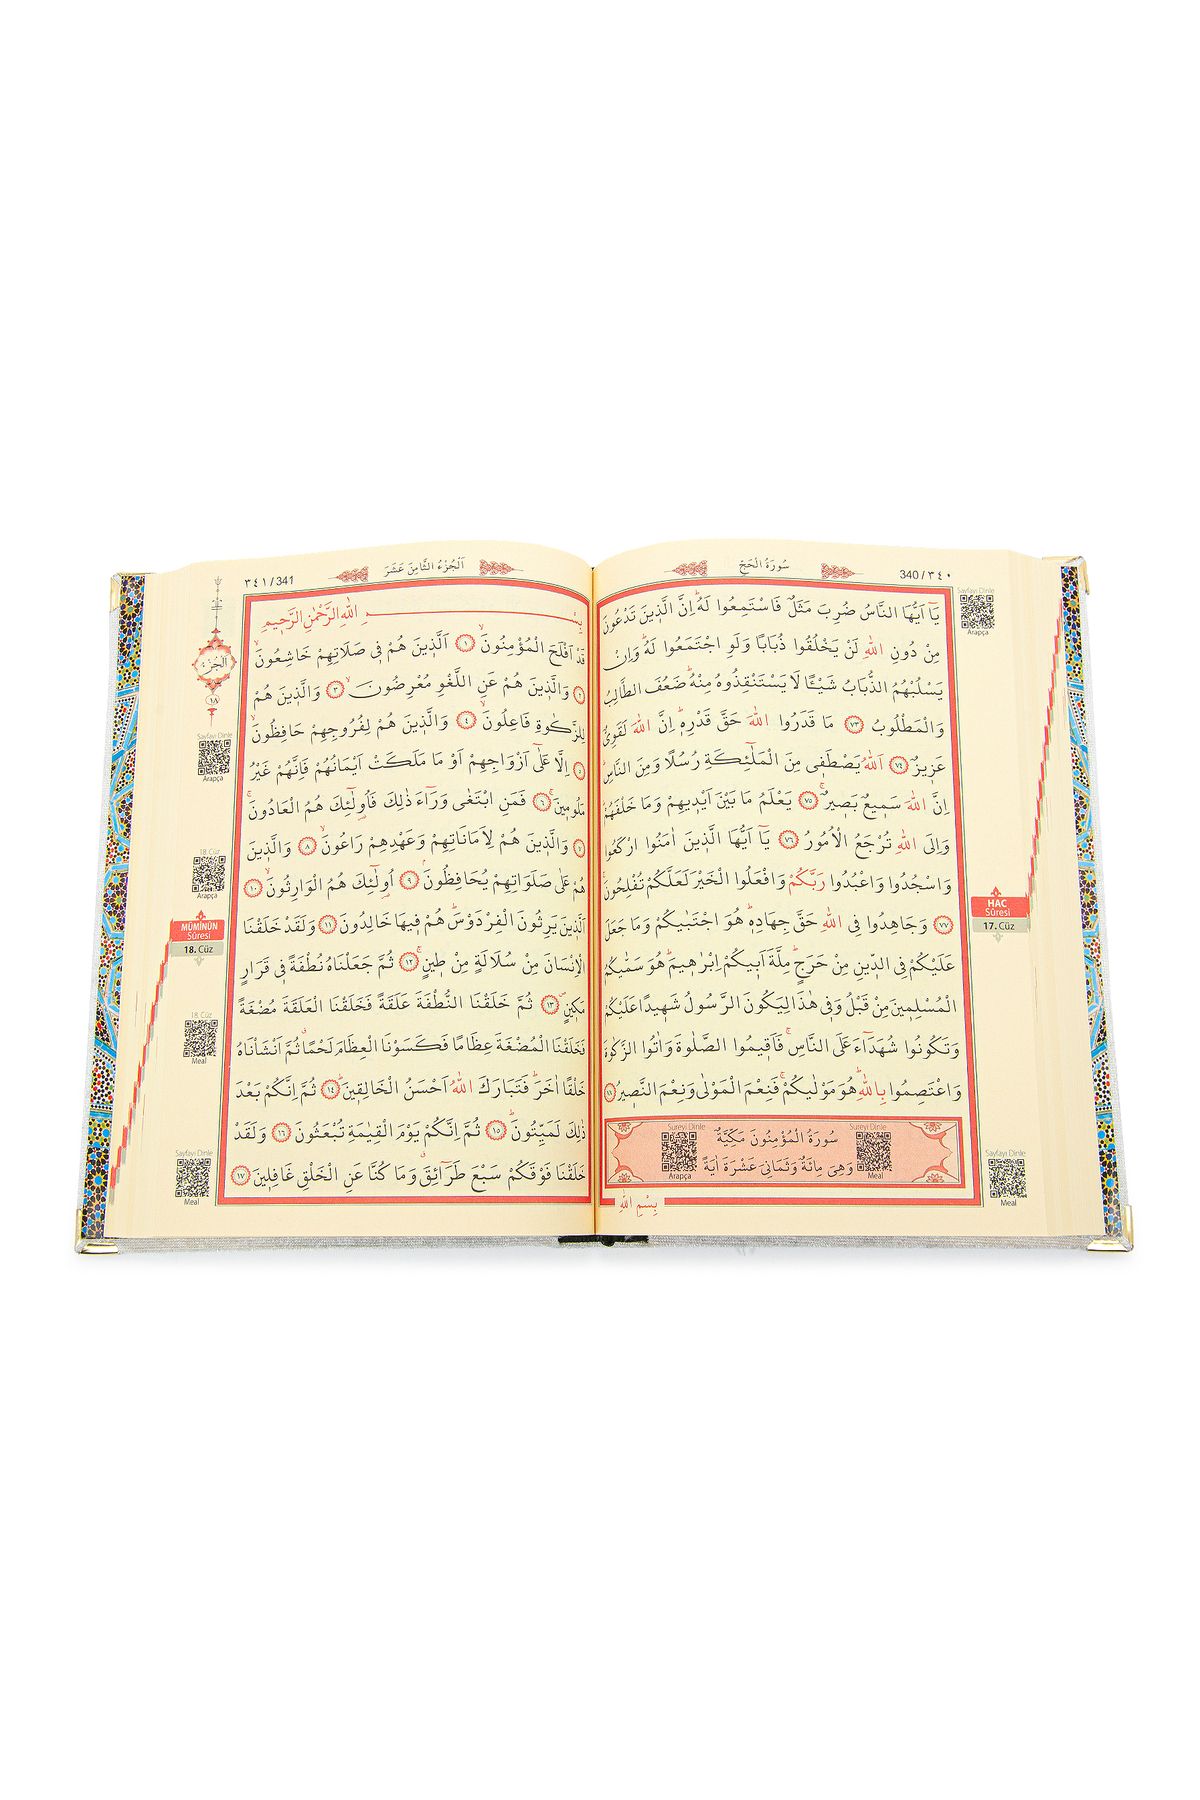 340/٣٤٠
سُورَةُ الْحَجِّ
Sayfayı Dinle
Arapça
يَٓا اَيُّهَا النَّاسُ ضُرِبَ مَثَلٌ فَاسْتَمِعُوا لَهُۜ اِنَّ الَّذ۪ينَ تَدْعُونَ
مِنْ دُونِ اللّٰهِ لَنْ يَخْلُقُوا ذُبَابًا وَلَوِ اجْتَمَعُوا لَهُۜ وَاِنْ
يَسْلُبْهُمُ الذُّبَابُ شَيْـًٔا لَا يَسْتَنْقِذُوهُ مِنْهُۜ ضَعُفَ الطَّالِبُ
وَالْمَطْلُوبُ ٧٣ مَا قَدَرُوا اللّٰهَ حَقَّ قَدْرِه۪ۜ اِنَّ اللّٰهَ لَقَوِيٌّ
عَز۪يزٌ ٧٤ اَللّٰهُ يَصْطَف۪ي مِنَ الْمَلٰٓئِكَةِ رُسُلًا وَمِنَ النَّاسِۜ
اِنَّ اللّٰهَ سَم۪يعٌ بَص۪يرٌۚ ٧٥ يَعْلَمُ مَا بَيْنَ اَيْد۪يهِمْ وَمَا خَلْفَهُمْۜ
وَاِلَى اللّٰهِ تُرْجَعُ الْاُمُورُ ٧٦ يَٓا اَيُّهَا الَّذ۪ينَ اٰمَنُوا ارْكَعُوا
وَاسْجُدُوا وَاعْبُدُوا رَبَّكُمْ وَافْعَلُوا الْخَيْرَ لَعَلَّكُمْ تُفْلِحُونَۚ
٧٧ وَجَاهِدُوا فِي اللّٰهِ حَقَّ جِهَادِه۪ۜ هُوَ اجْتَبٰيكُمْ وَمَا جَعَلَ
عَلَيْكُمْ فِي الدّ۪ينِ مِنْ حَرَجٍۜ مِلَّةَ اَب۪يكُمْ اِبْرٰه۪يمَۜ هُوَ سَمّٰيكُمُ
الْمُسْلِم۪ينَ مِنْ قَبْلُ وَف۪ي هٰذَا لِيَكُونَ الرَّسُولُ شَه۪يدًا عَلَيْكُمْ
وَتَكُونُوا شُهَدَٓاءَ عَلَى النَّاسِۚ فَاَق۪يمُوا الصَّلٰوةَ وَاٰتُوا الزَّكٰوةَ
وَاعْتَصِمُوا بِاللّٰهِۜ هُوَ مَوْلٰيكُمْۚ فَنِعْمَ الْمَوْلٰى وَنِعْمَ النَّص۪يرُ
سُورَةُ الْمُؤْمِنُونَ مَكِّيَّةٌ
وَهِيَ مِائَةٌ وَثَمَانِيَ عَشْرَةَ اٰيَةً
Sureyi Dinle
Arapça
Sureyi Dinle
Meal
بِسْمِ اللّٰهِ
HAC
Sûresi
17. Cüz
Sayfayı Dinle
Meal
٣٤١/341
اَلْجُزْءُ الثَّامِنَ عَشَرَ
اَلْجُزْءُ
١٨
Sayfayı Dinle
Arapça
18. Cüz
Arapça
MÜMİNÛN
Sûresi
18. Cüz
18. Cüz
Meal
Sayfayı Dinle
Meal
بِسْمِ اللّٰهِ الرَّحْمٰنِ الرَّح۪يمِ
قَدْ اَفْلَحَ الْمُؤْمِنُونَۙ ١ اَلَّذ۪ينَ هُمْ ف۪ي صَلَاتِهِمْ خَاشِعُونَۙ
٢ وَالَّذ۪ينَ هُمْ عَنِ اللَّغْوِ مُعْرِضُونَۙ ٣ وَالَّذ۪ينَ هُمْ
لِلزَّكٰوةِ فَاعِلُونَۙ ٤ وَالَّذ۪ينَ هُمْ لِفُرُوجِهِمْ حَافِظُونَۙ
٥ اِلَّا عَلٰٓى اَزْوَاجِهِمْ اَوْ مَا مَلَكَتْ اَيْمَانُهُمْ فَاِنَّهُمْ غَيْرُ
مَلُوم۪ينَۚ ٦ فَمَنِ ابْتَغٰى وَرَٓاءَ ذٰلِكَ فَاُو۬لٰٓئِكَ هُمُ الْعَادُونَۚ
وَالَّذ۪ينَ هُمْ لِاَمَانَاتِهِمْ وَعَهْدِهِمْ رَاعُونَۙ ٨ وَالَّذ۪ينَ
هُمْ عَلٰى صَلَوَاتِهِمْ يُحَافِظُونَۢ ٩ اُو۬لٰٓئِكَ هُمُ الْوَارِثُونَۙ ١٠
اَلَّذ۪ينَ يَرِثُونَ الْفِرْدَوْسَۜ هُمْ ف۪يهَا خَالِدُونَ ١١ وَلَقَدْ خَلَقْنَا
الْاِنْسَانَ مِنْ سُلَالَةٍ مِنْ ط۪ينٍۚ ١٢ ثُمَّ جَعَلْنَاهُ نُطْفَةً ف۪ي قَرَارٍ
مَك۪ينٍۖ ١٣ ثُمَّ خَلَقْنَا النُّطْفَةَ عَلَقَةً فَخَلَقْنَا الْعَلَقَةَ مُضْغَةً
فَخَلَقْنَا الْمُضْغَةَ عِظَامًا فَكَسَوْنَا الْعِظَامَ لَحْمًا ثُمَّ اَنْشَأْنَاهُ
خَلْقًا اٰخَرَۜ فَتَبَارَكَ اللّٰهُ اَحْسَنُ الْخَالِق۪ينَۜ ١٤ ثُمَّ اِنَّكُمْ بَعْدَ
ذٰلِكَ لَمَيِّتُونَۜ ١٥ ثُمَّ اِنَّكُمْ يَوْمَ الْقِيٰمَةِ تُبْعَثُونَ ١٦ وَلَقَدْ
خَلَقْنَا فَوْقَكُمْ سَبْعَ طَرَٓائِقَۗ وَمَا كُنَّا عَنِ الْخَلْقِ غَافِل۪ينَ ١٧